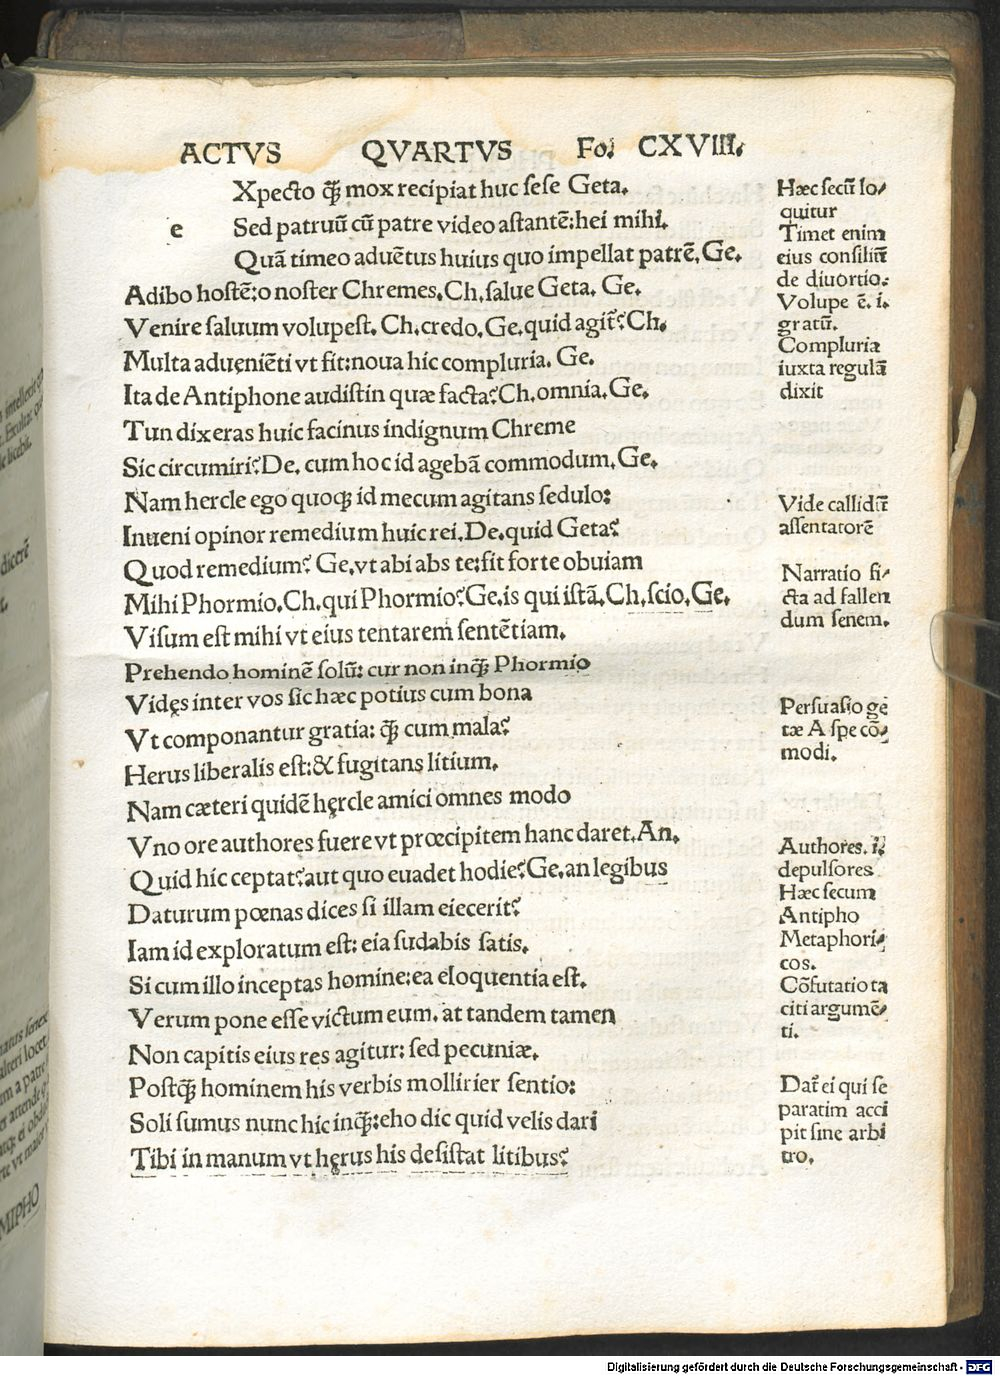 ACTVS QVARTVS Fo. CXVIII.
e
Xpecto q̃ mox recipiat huc sese Geta.
Sed patruũ cũ patre video astantẽ:hei mihi.
Quã timeo aduẽtus huius quo impellat patrẽ. Ge.
Adibo hostẽ:o noster Chremes. Ch. salue Geta. Ge.
Venire saluum volupest. Ch. credo. Ge. quid agit̃? Ch.
Multa adueniẽti vt fit:noua hic compluria. Ge.
Ita de Antiphone audistin quæ facta? Ch. omnia. Ge.
Tun dixeras huic facinus indignum Chreme
Sic circumiri? De. cum hoc id agebã commodum. Ge.
Nam hercle ego quoqꝫ id mecum agitans sedulo:
Inueni opinor remedium huic rei. De. quid Geta?
Quod remedium? Ge. vt abi abs te:fit forte obuiam
Mihi Phormio. Ch. qui Phormio? Ge. is qui istã. Ch. scio. Ge.
Visum est mihi vt eius tentarem sentẽtiam.
Prehendo hominẽ solũ: cur non inq̃ Phormio
Vidęs inter vos sic hæc potius cum bona
Vt componantur gratia: q̃ cum mala?
Herus liberalis est:& fugitans litium.
Nam cæteri quidẽ hęrcle amici omnes modo
Vno ore authores fuere vt prœcipitem hanc daret. An.
Quid hic ceptat? aut quo euadet hodie? Ge. an legibus
Daturum pœnas dices si illam eiecerit?
Iam id exploratum est: eia sudabis satis.
Si cum illo inceptas homine:ea eloquentia est.
Verum pone esse victum eum. at tandem tamen
Non capitis eius res agitur: sed pecuniæ.
Postq̃ hominem his verbis mollirier sentio:
Soli sumus nunc hic inq̃:eho dic quid velis dari
Tibi in manum vt hęrus his desistat litibus?
Hæc secũ lo/
quitur
Timet enim
eius consiliũ
de diuortio.
Volupe ẽ. i.
gratũ.
Compluria
iuxta regulã
dixit
Vide callidũ
assentatorẽ
Narratio fi/
cta ad fallen
dum senem.
Persuasio ge
tæ A spe cõ/
modi.
Authores. i.
depulsores
Hæc secum
Antipho
Metaphori/
cos.
Cõfutatio ta
citi argumẽ/
ti.
Dat̃ ei qui se
paratim acci
pit sine arbi
tro.
Digitalisierung gefördert durch die Deutsche Forschungsgemeinschaft - DFG